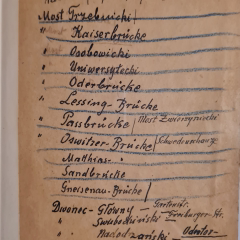 Most Trzebnicki
" Kaiserbrücke
" Osobowicki
" Uniwersytecki
" Oderbrücke
" Lessing-Brücke
" Passbrücke / Most Zwierzyniecki
" Oswitzer-Brücke / Schwedenschanz
" Matthias- "
" Sandbrücke
" Gneisenau-Brücke /
Dworzec-Główny - Gartenstr.
" Świebodziński - Freiburger-Str.
" Nadodrzański - Odertor-